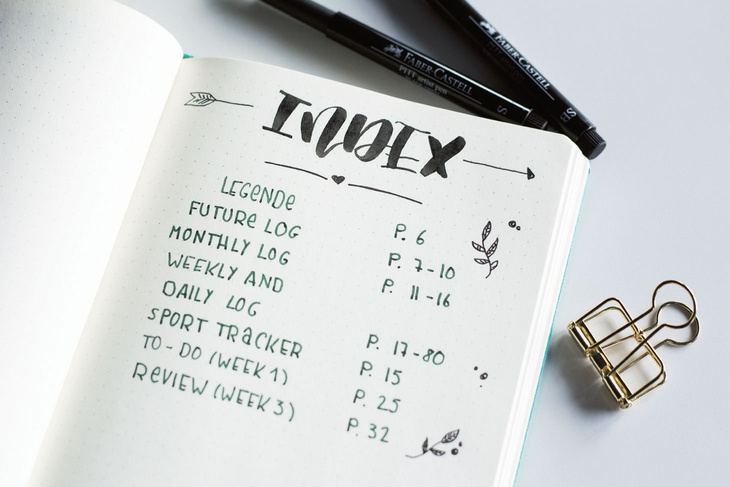 INDEX
LEGENDE P. 6
FUTURE LOG P. 7-10
MONTHLY LOG P. 11-16
WEEKLY AND
DAILY LOG P. 17-80
SPORT TRACKER P. 15
TO-DO (WEEK 1) P. 25
REVIEW (WEEK 3) P. 32
FABER-CASTELL
PITT artist pen
S
FABER-CASTELL